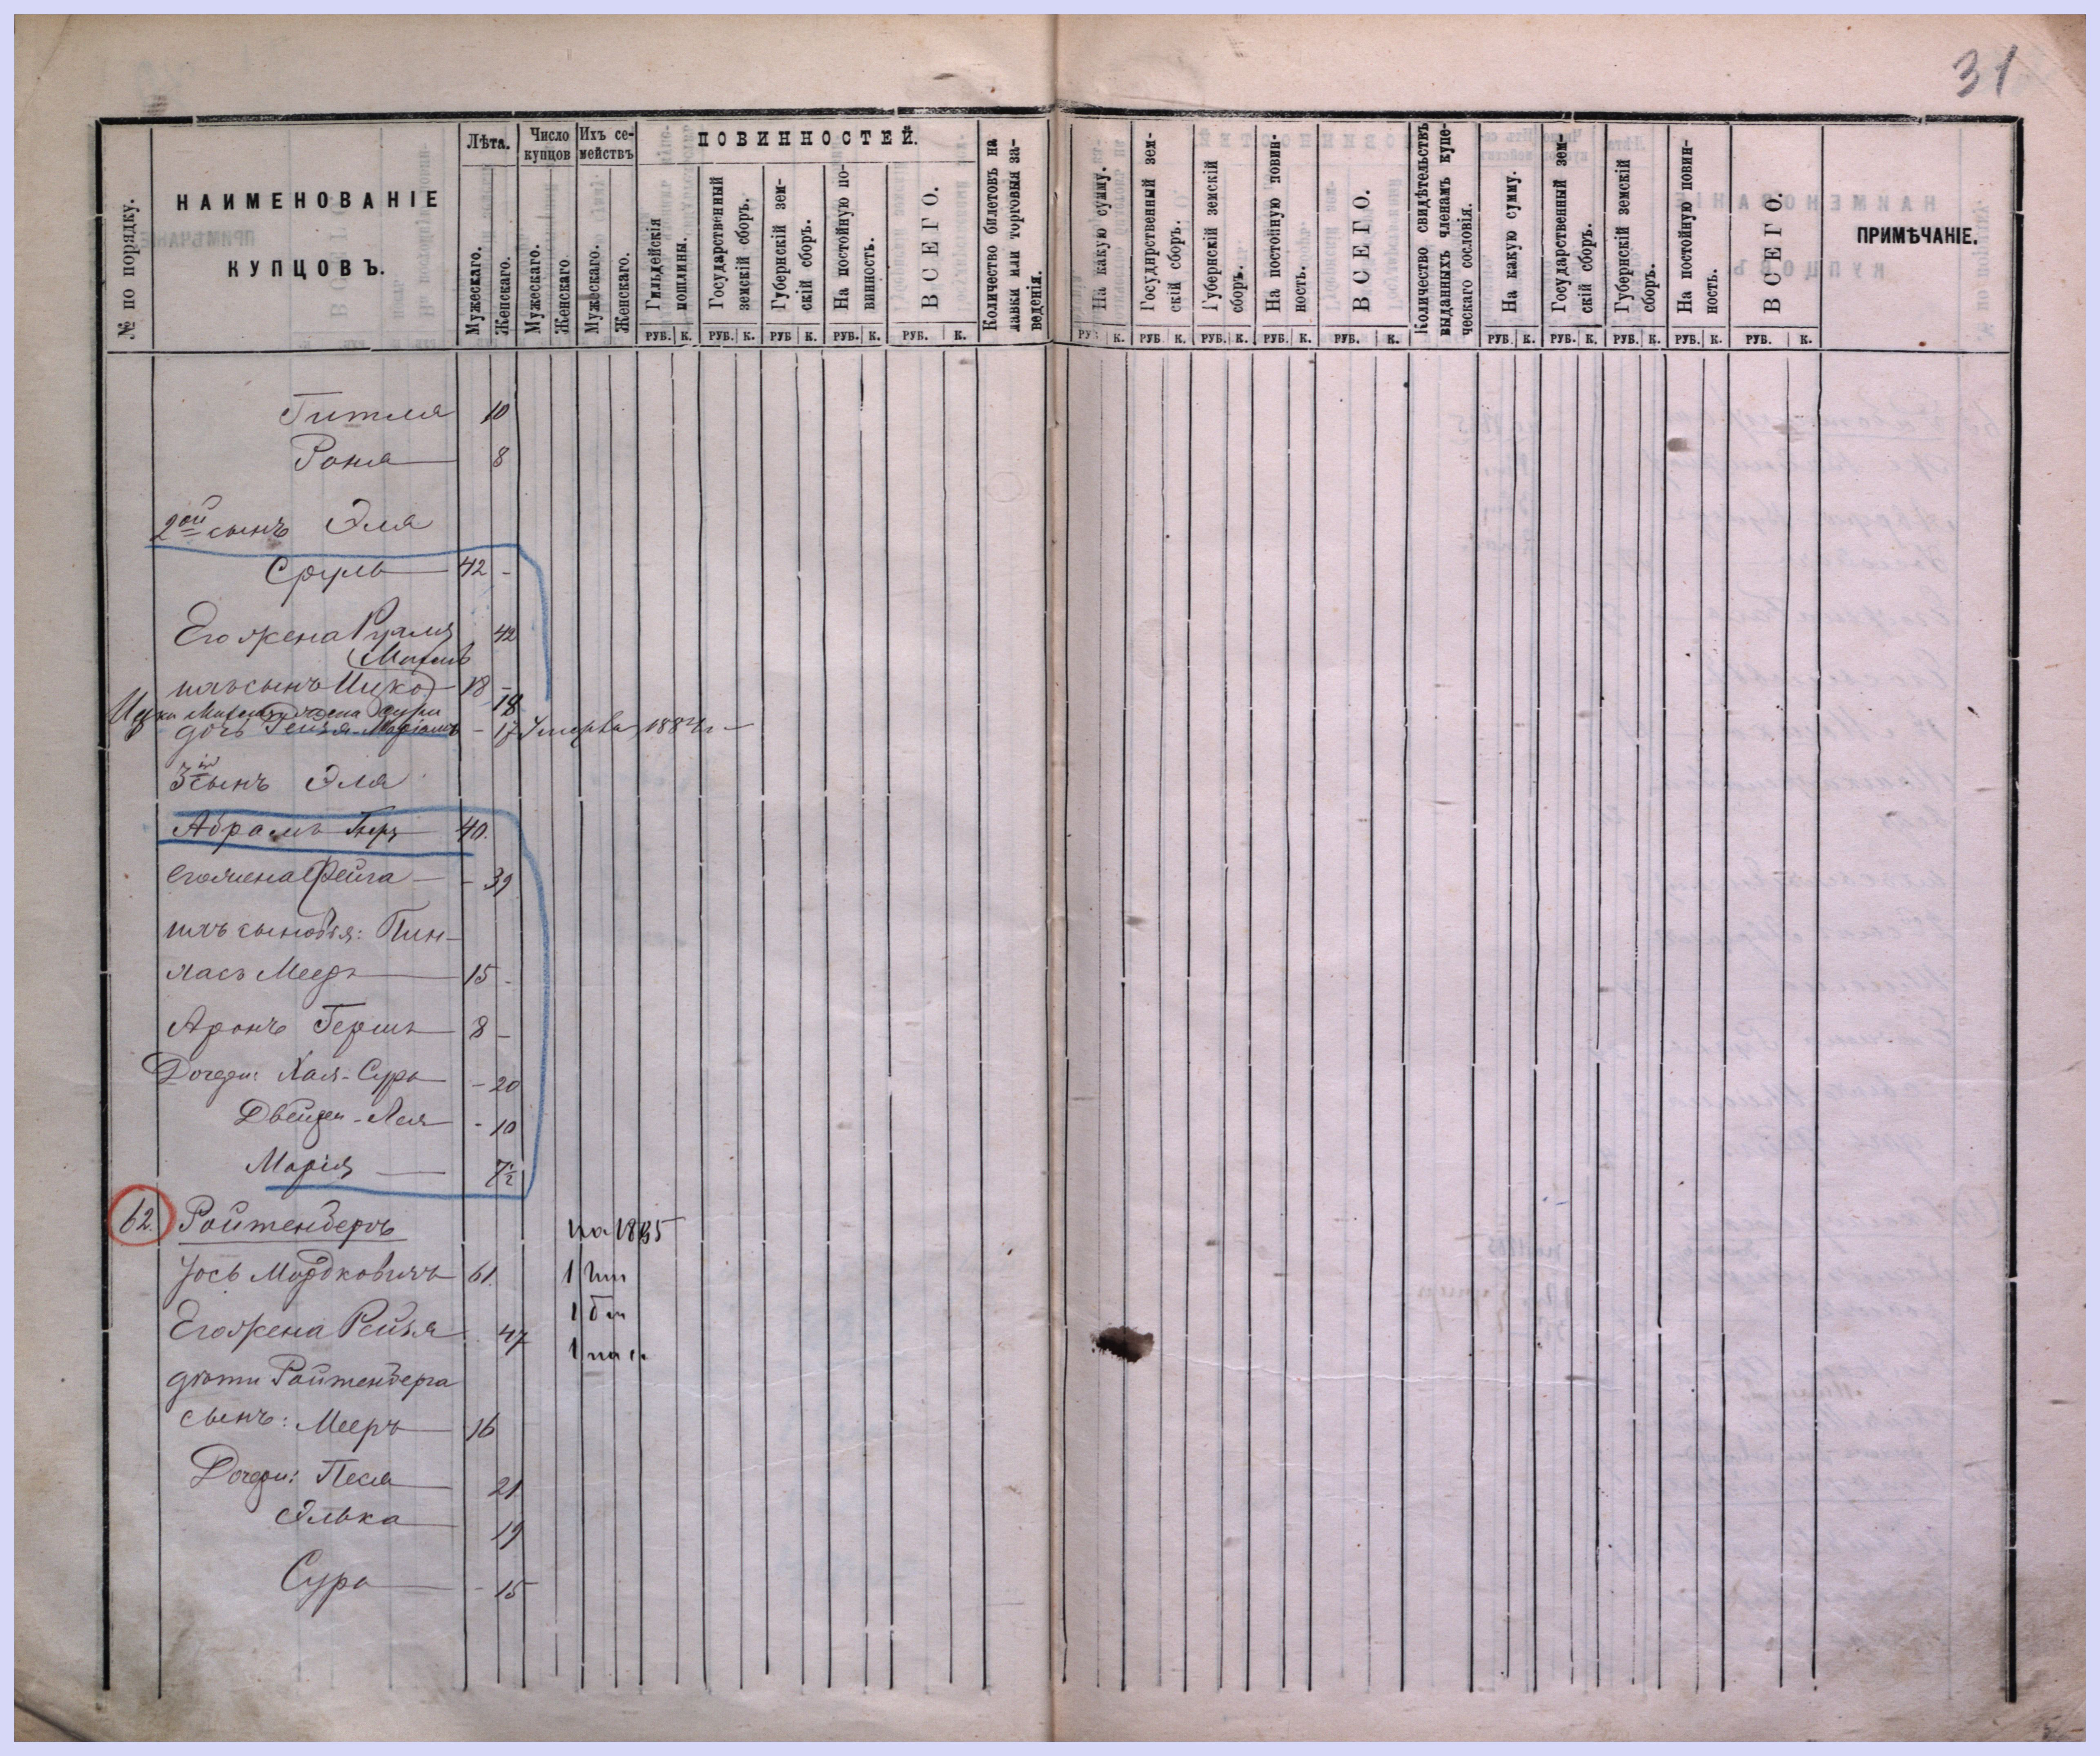 31
№ по порядку.
НАИМЕНОВАНІЕ
КУПЦОВЪ.
Лѣта.
Мужескаго.
Женскаго.
Число купцовъ
Мужескаго.
Женскаго.
Ихъ семействъ
Мужескаго.
Женскаго.
ПОВИННОСТЕЙ.
Гильдейскія пошлины.
Государственный земскій сборъ.
Губернскій земскій сборъ.
На постойную повинность.
ВСЕГО.
Количество билетовъ на лавки или торговыя заведенія.
На какую сумму.
Государственный земскій сборъ.
Губернскій земскій сборъ.
На постойную повинность.
ВСЕГО.
Количество свидѣтельствъ выданныхъ членамъ купеческаго сословія.
На какую сумму.
Государственный земскій сборъ.
Губернскій земскій сборъ.
На постойную повинность.
ВСЕГО.
ПРИМѢЧАНІЕ.
РУБ. К. РУБ. К. РУБ К. РУБ. К. РУБ. К. К. РУБ. К. РУБ. К. РУБ. К. РУБ. К. РУБ. К. РУБ. К. РУБ. К. РУБ. К. РУБ. К.
Гитля 10
Роня 8
2ой сынъ Эля
Сруль 42 -
Его жена 42
ихъ сынъ Ицко 18 -
жена Сура 18
дочь - 17 Умерла 188
3й сынъ Эля
Абрамъ Герц 40.
его жена Фейга - 39
ихъ сыновья: Пин-
хасъ Мееръ 15 -
Аронъ Гершъ 8 -
Дочери: Хая-Сура - 20
Двейра-Лея - 10
Марія 7½
62. Ройтенбергъ на 1885
Іось Мордковичъ 61. 1
Его жена Рейзя 47 1
1
дѣти Ройтенберга
сынъ: Мееръ 16
Дочери: Песя 21
Элька 19
Сура - 15